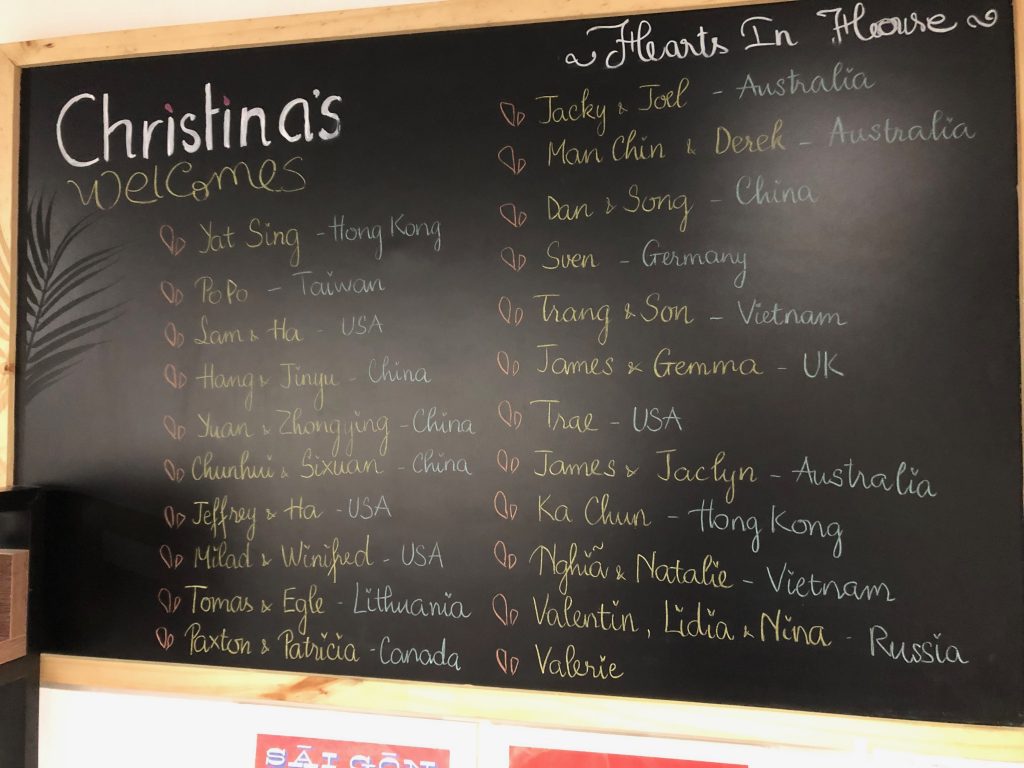 Christina's
welcomes
Yat Sing - Hong Kong
PoPo - Taiwan
Lam & Ha - USA
Hang & Jinyu - China
Yuan & Zhongying - China
Chunhui & Sixuan - China
Jeffrey & Ha - USA
Milad & Winifred - USA
Tomas & Egle - Lithuania
Paxton & Patricia - Canada
~ Hearts In House ~
Jacky & Joel - Australia
Man Chin & Derek - Australia
Dan & Song - China
Sven - Germany
Trang & Son - Vietnam
James & Gemma - UK
Trae - USA
James & Jaclyn - Australia
Ka Chun - Hong Kong
Nghĩa & Natalie - Vietnam
Valentin, Lidia & Nina - Russia
Valerie
SÀI GÒN